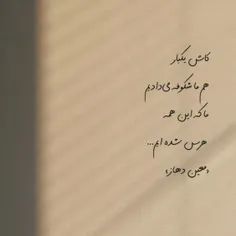 کاش یکبار
هم ما شکوفه می‌دادیم
ما که این همه
هرس شده ایم...
«معین دهاز»